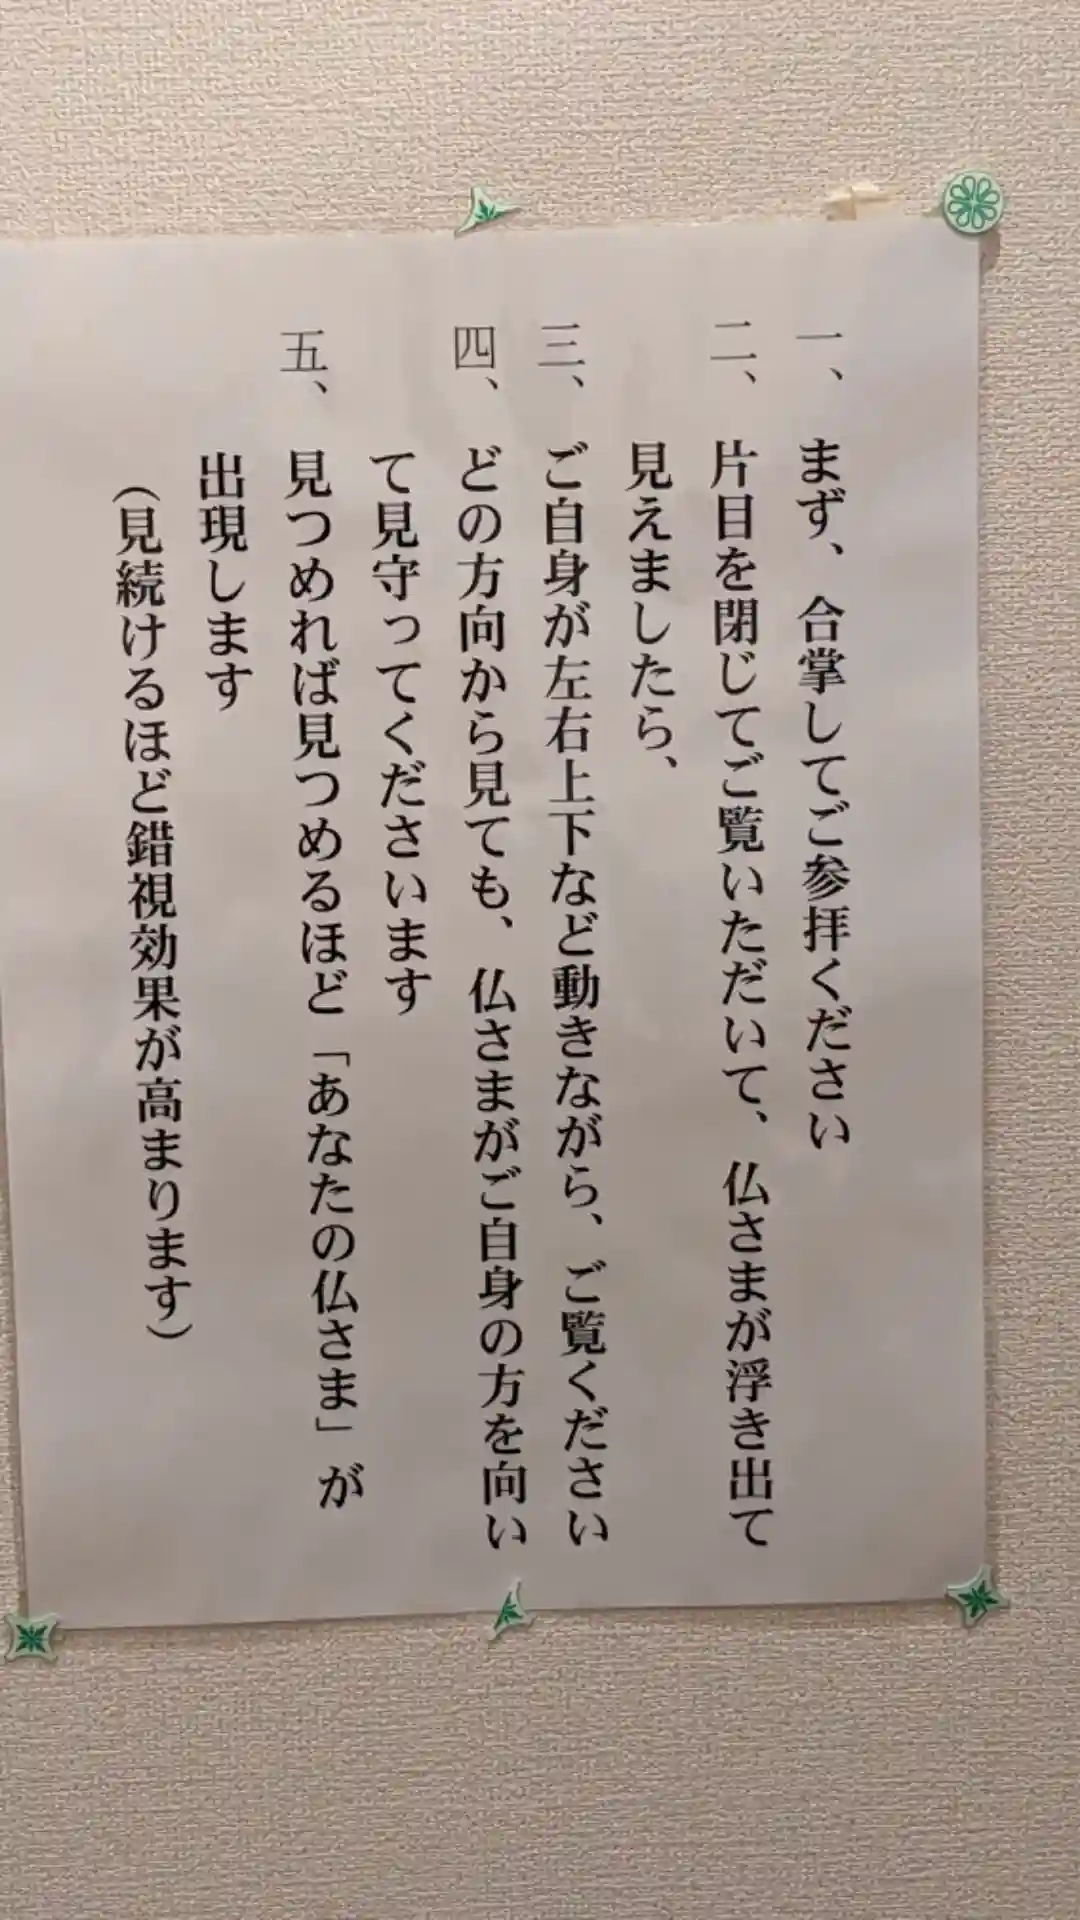 一、まず、合掌してご参拝ください
二、片目を閉じてご覧いただいて、仏さまが浮き出て
見えましたら、
三、ご自身が左右上下など動きながら、ご覧ください
四、どの方向から見ても、仏さまがご自身の方を向い
て見守ってくださいます
五、見つめれば見つめるほど「あなたの仏さま」が
出現します
（見続けるほど錯視効果が高まります）